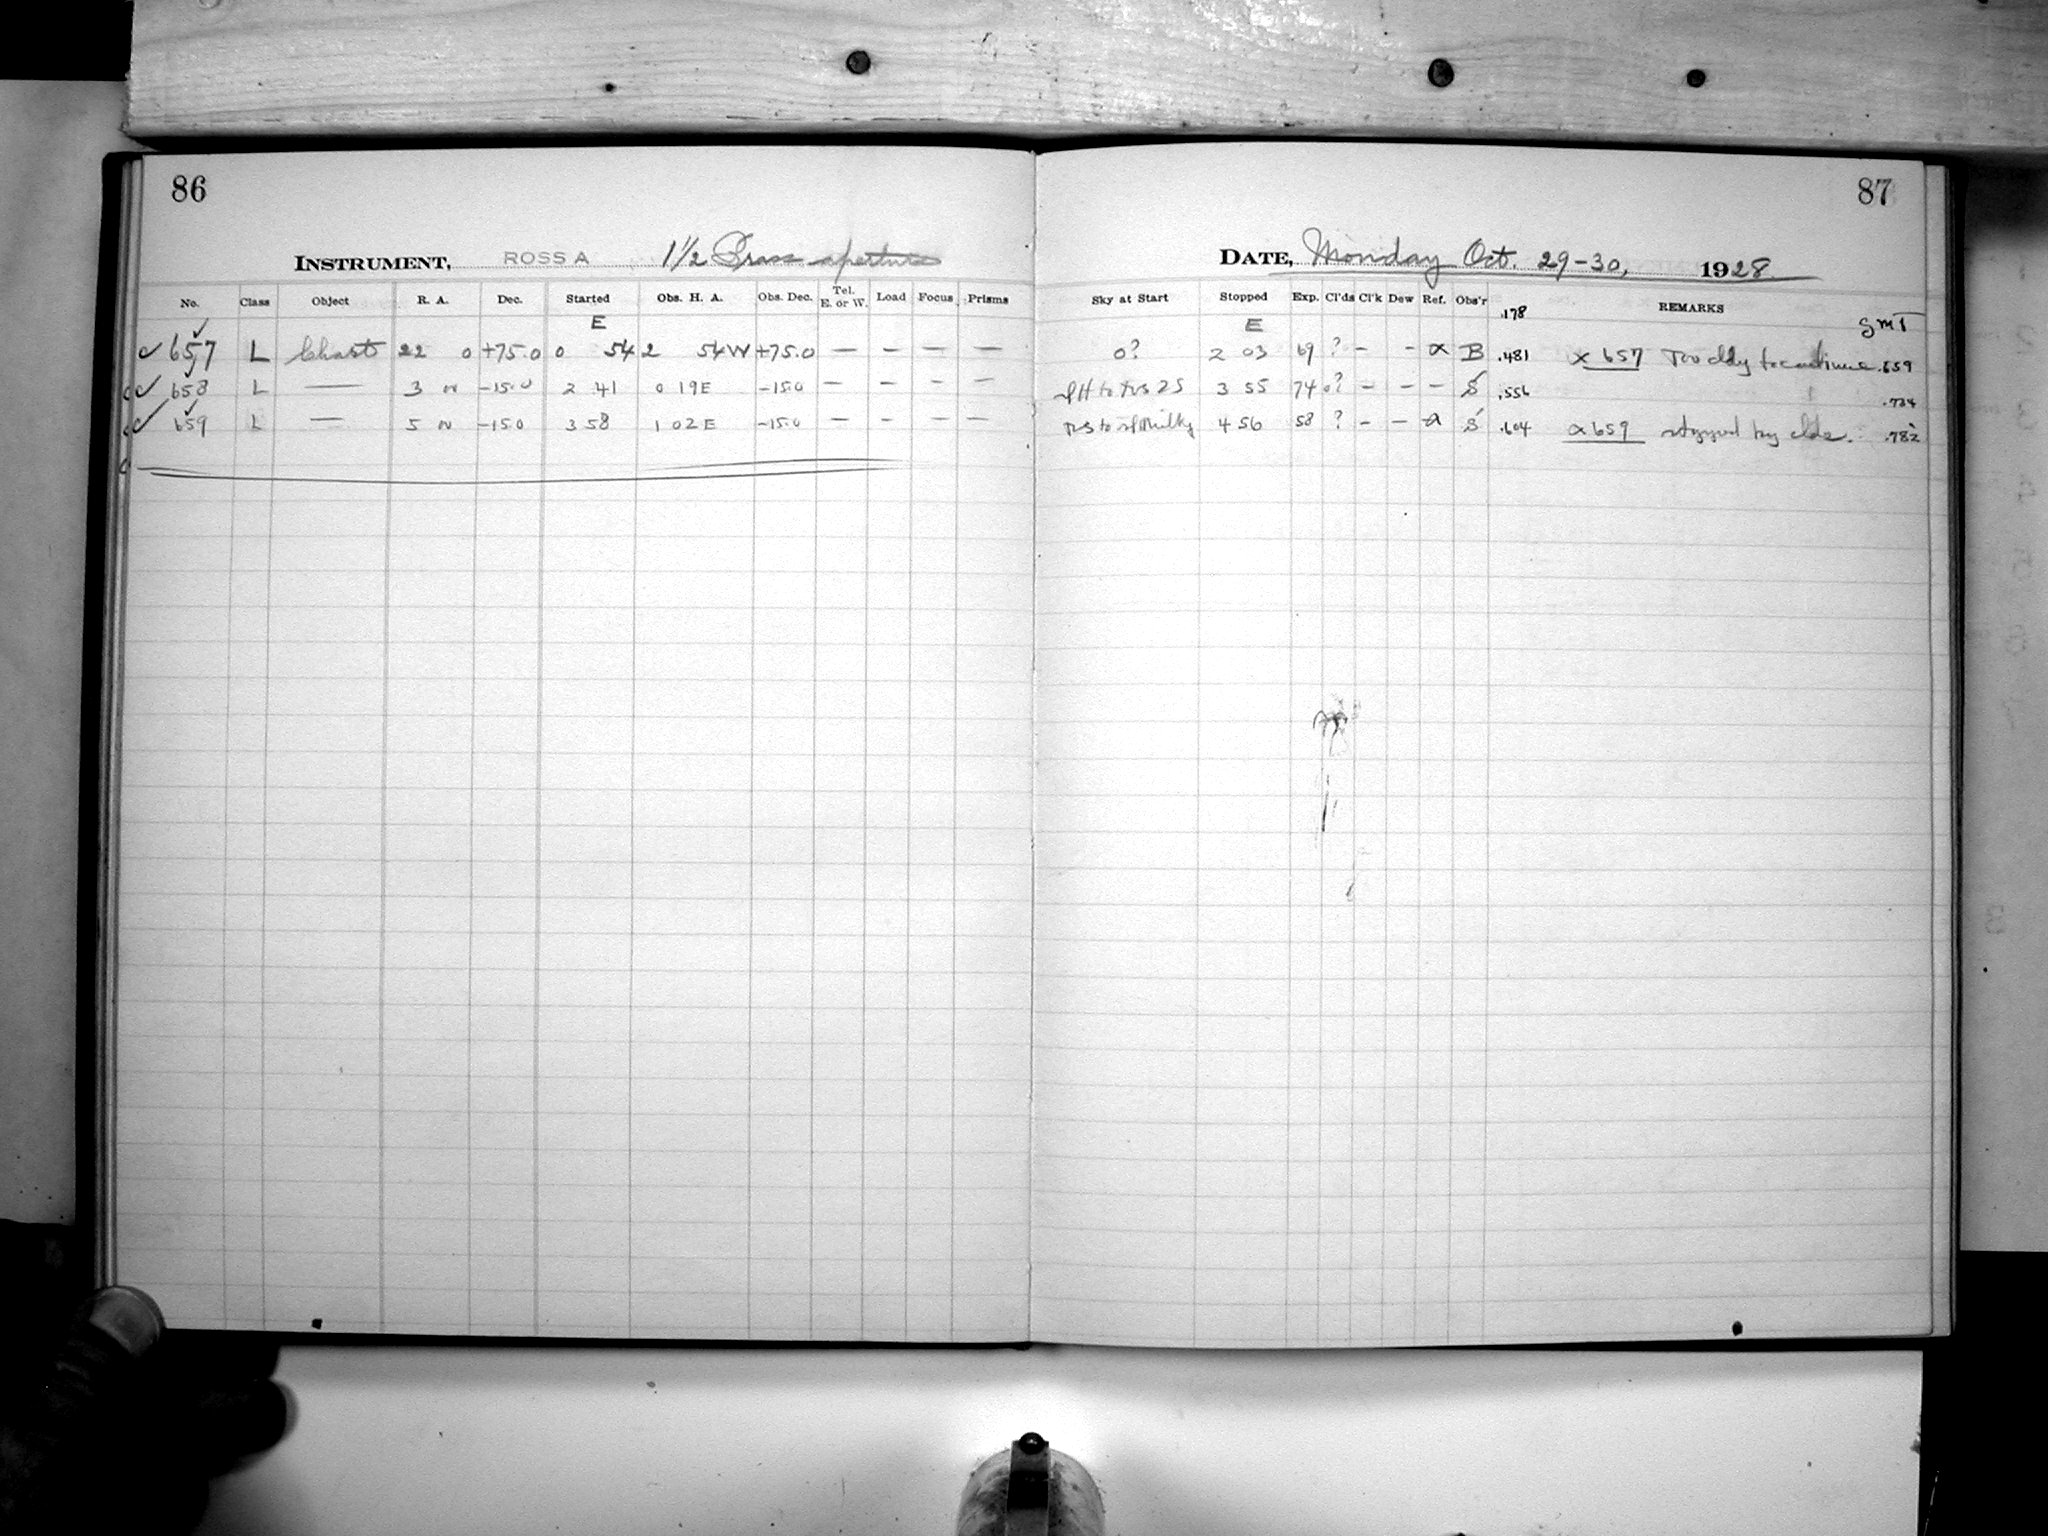 86
INSTRUMENT, ROSS A 1½ Brass aperture
No. Class Object R. A. Dec. Started Obs. H. A. Obs. Dec. Tel. E. or W. Load Focus Prisms
E
✓ 657 L Chart 22 0 +75.0 0 54 2 54W +75.0 — — — —
✓ 658 L — 3 N -15.0 2 41 0 19E -15.0 — — — —
✓ 659 L — 5 N -15.0 3 58 1 02E -15.0 — — — —
87
DATE, Monday Oct. 29-30, 1928
Sky at Start Stopped Exp. Cl'ds Cl'k Dew Ref. Obs'r REMARKS
E .178 GMT
0? 2 03 69 ? - - α B .481 × 657 Too cldy to continue .659
to 25 3 55 74 0? - - - S .556 .734
to Milky 4 56 58 ? - - α S .604 α 659 stopped by clds. .782